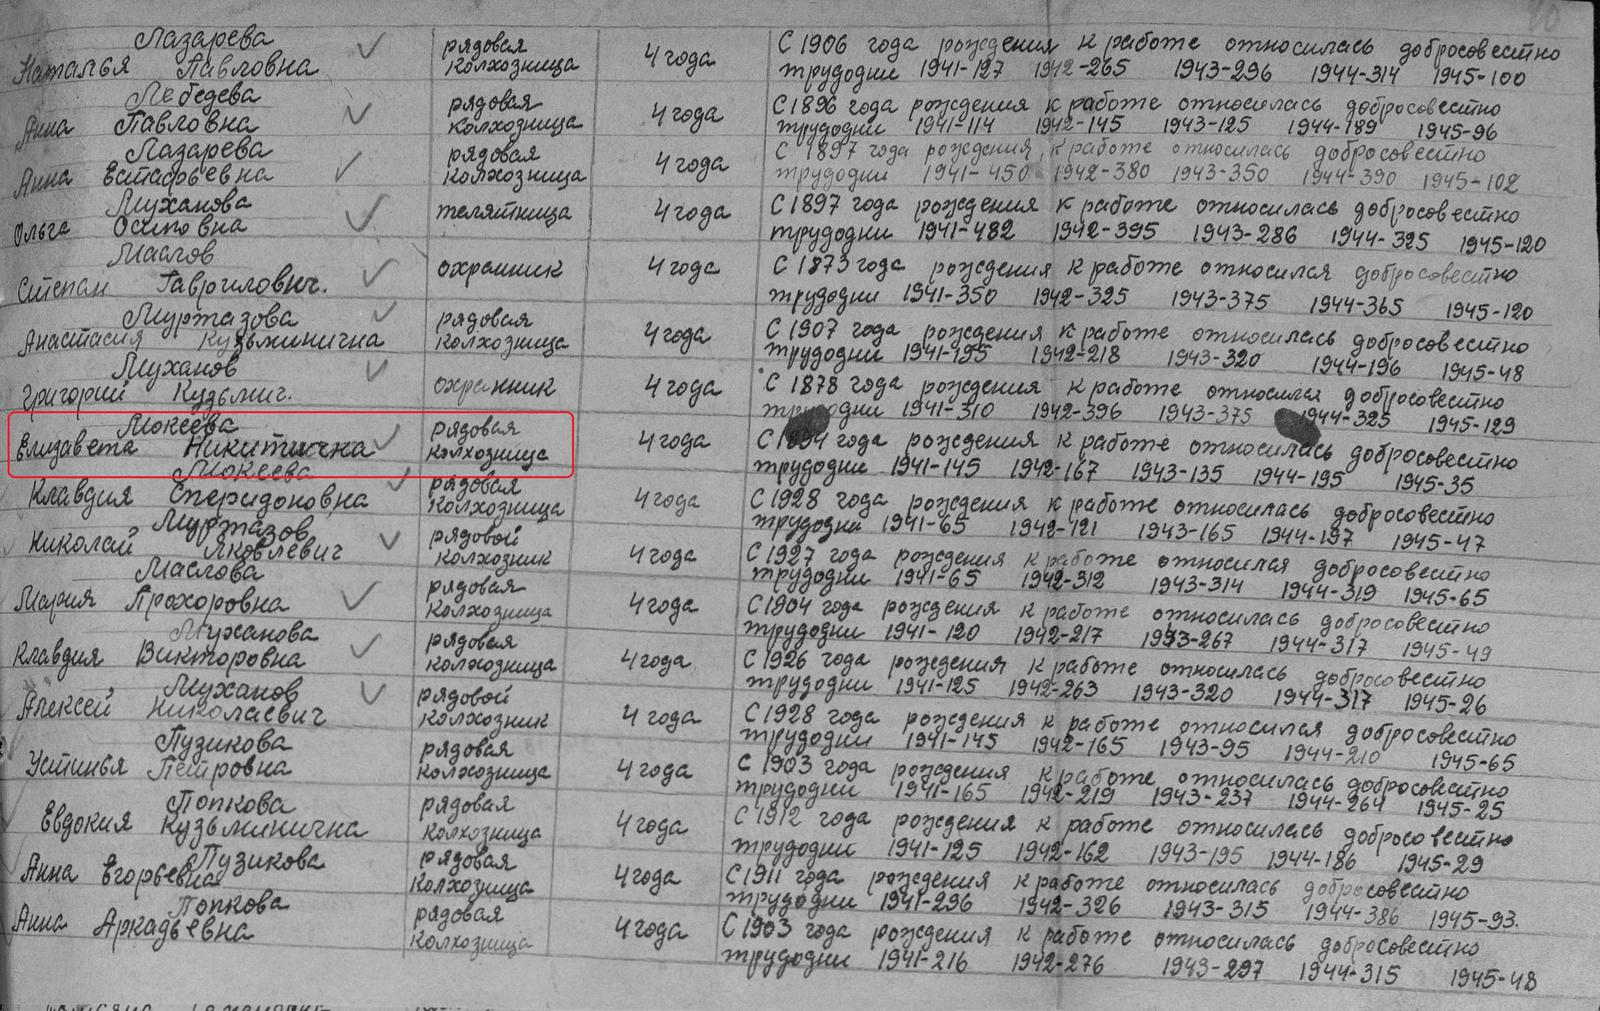 Лазарева
Наталья Павловна рядовая колхозница 4 года С 1906 года рождения к работе относилась добросовестно
трудодни 1941-127 1942-265 1943-296 1944-314 1945-100
Лебедева
Анна Павловна рядовая колхозница 4 года С 1896 года рождения к работе относилась добросовестно
трудодни 1941-114 1942-145 1943-125 1944-189 1945-96
Лазарева
Анна Естафьевна рядовая колхозница 4 года С 1897 года рождения к работе относилась добросовестно
трудодни 1941-450 1942-380 1943-350 1944-390 1945-102
Муханова
Ольга Осиповна телятница 4 года С 1897 года рождения к работе относилась добросовестно
трудодни 1941-482 1942-395 1943-286 1944-325 1945-120
Маслов
Степан Гаврилович. охранник 4 года С 1873 года рождения к работе относился добросовестно
трудодни 1941-350 1942-325 1943-375 1944-365 1945-120
Муртазова
Анастасия Кузьминична рядовая колхозница 4 года С 1907 года рождения к работе относилась добросовестно
трудодни 1941-195 1942-218 1943-320 1944-196 1945-48
Муханов
Григорий Кузьмич. охранник 4 года С 1878 года рождения к работе относился добросовестно
трудодни 1941-310 1942-396 1943-375 1944-325 1945-129
Мокеева
Елизавета Никитична рядовая колхозница 4 года С 1894 года рождения к работе относилась добросовестно
трудодни 1941-145 1942-167 1943-135 1944-195 1945-35
Мокеева
Клавдия Спиридоновна рядовая колхозница 4 года С 1928 года рождения к работе относилась добросовестно
трудодни 1941-65 1942-121 1943-165 1944-197 1945-47
Муртазов
Николай Яковлевич рядовой колхозник 4 года С 1927 года рождения к работе относился добросовестно
трудодни 1941-65 1942-312 1943-314 1944-319 1945-65
Маслова
Мария Прохоровна рядовая колхозница 4 года С 1904 года рождения к работе относилась добросовестно
трудодни 1941-120 1942-217 1943-267 1944-317 1945-49
Муханова
Клавдия Викторовна рядовая колхозница 4 года С 1926 года рождения к работе относилась добросовестно
трудодни 1941-125 1942-263 1943-320 1944-317 1945-26
Муханов
Алексей Николаевич рядовой колхозник 4 года С 1928 года рождения к работе относился добросовестно
трудодни 1941-145 1942-165 1943-95 1944-210 1945-65
Пузикова
Устинья Петровна рядовая колхозница 4 года С 1903 года рождения к работе относилась добросовестно
трудодни 1941-165 1942-219 1943-237 1944-264 1945-25
Попкова
Евдокия Кузьминична рядовая колхозница 4 года С 1912 года рождения к работе относилась добросовестно
трудодни 1941-125 1942-162 1943-195 1944-186 1945-29
Пузикова
Анна Егорьевна рядовая колхозница 4 года С 1911 года рождения к работе относилась добросовестно
трудодни 1941-296 1942-326 1943-315 1944-386 1945-93.
Попкова
Анна Аркадьевна рядовая колхозница 4 года С 1903 года рождения к работе относилась добросовестно
трудодни 1941-216 1942-276 1943-297 1944-315 1945-48